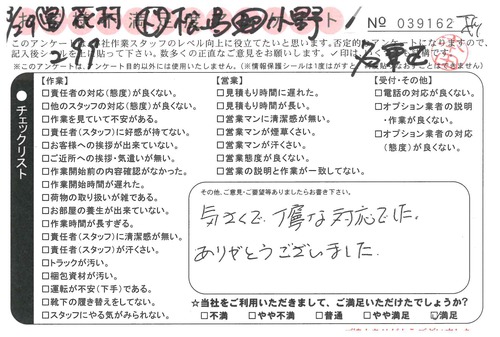 3/29 小野
No 039162
299
このアンケートは
社作業スタッフのレベル向上に役立てたいと思います。否定的なアンケートになりますので、
記入後シールを上に貼って下さい。数多くの正直なご意見をお願いします。
※このアンケートは、アンケート目的以外には使用いたしません。
チェックリスト
【作業】
□責任者の対応(態度)が良くない。
□他のスタッフの対応(態度)が良くない。
□作業を見ていて不安がある。
□責任者(スタッフ)に好感が持てない。
□お客様への挨拶が出来ていない。
□ご近所への挨拶・気遣いが無い。
□作業開始前の内容確認がなかった。
□作業開始時間が遅れた。
□荷物の取り扱いが雑である。
□お部屋の養生が出来ていない。
□作業時間が長すぎる。
□責任者(スタッフ)に清潔感が無い。
□責任者(スタッフ)が汗くさい。
□トラックが汚い。
□梱包資材が汚い。
□運転が不安(下手)である。
□靴下の履き替えをしてない。
□スタッフにやる気がみられない。
【営業】
□見積もり時間に遅れた。
□見積もり時間が長い。
□営業マンに清潔感が無い。
□営業マンが煙草くさい。
□営業マンが汗くさい。
□営業態度が良くない。
□営業の説明と作業が一致してない。
【受付・その他】
□電話の対応が良くない。
□オプション業者の説明
・作業が良くない。
□オプション業者の対応
(態度)が良くない。
その他、ご意見・ご要望等ありましたらお書き下さい。
気さくで、丁寧な対応でした。
ありがとうございました。
☆当社をご利用いただきまして、ご満足いただけたでしょうか?
□不満 □やや不満 □普通 □やや満足 ☑満足